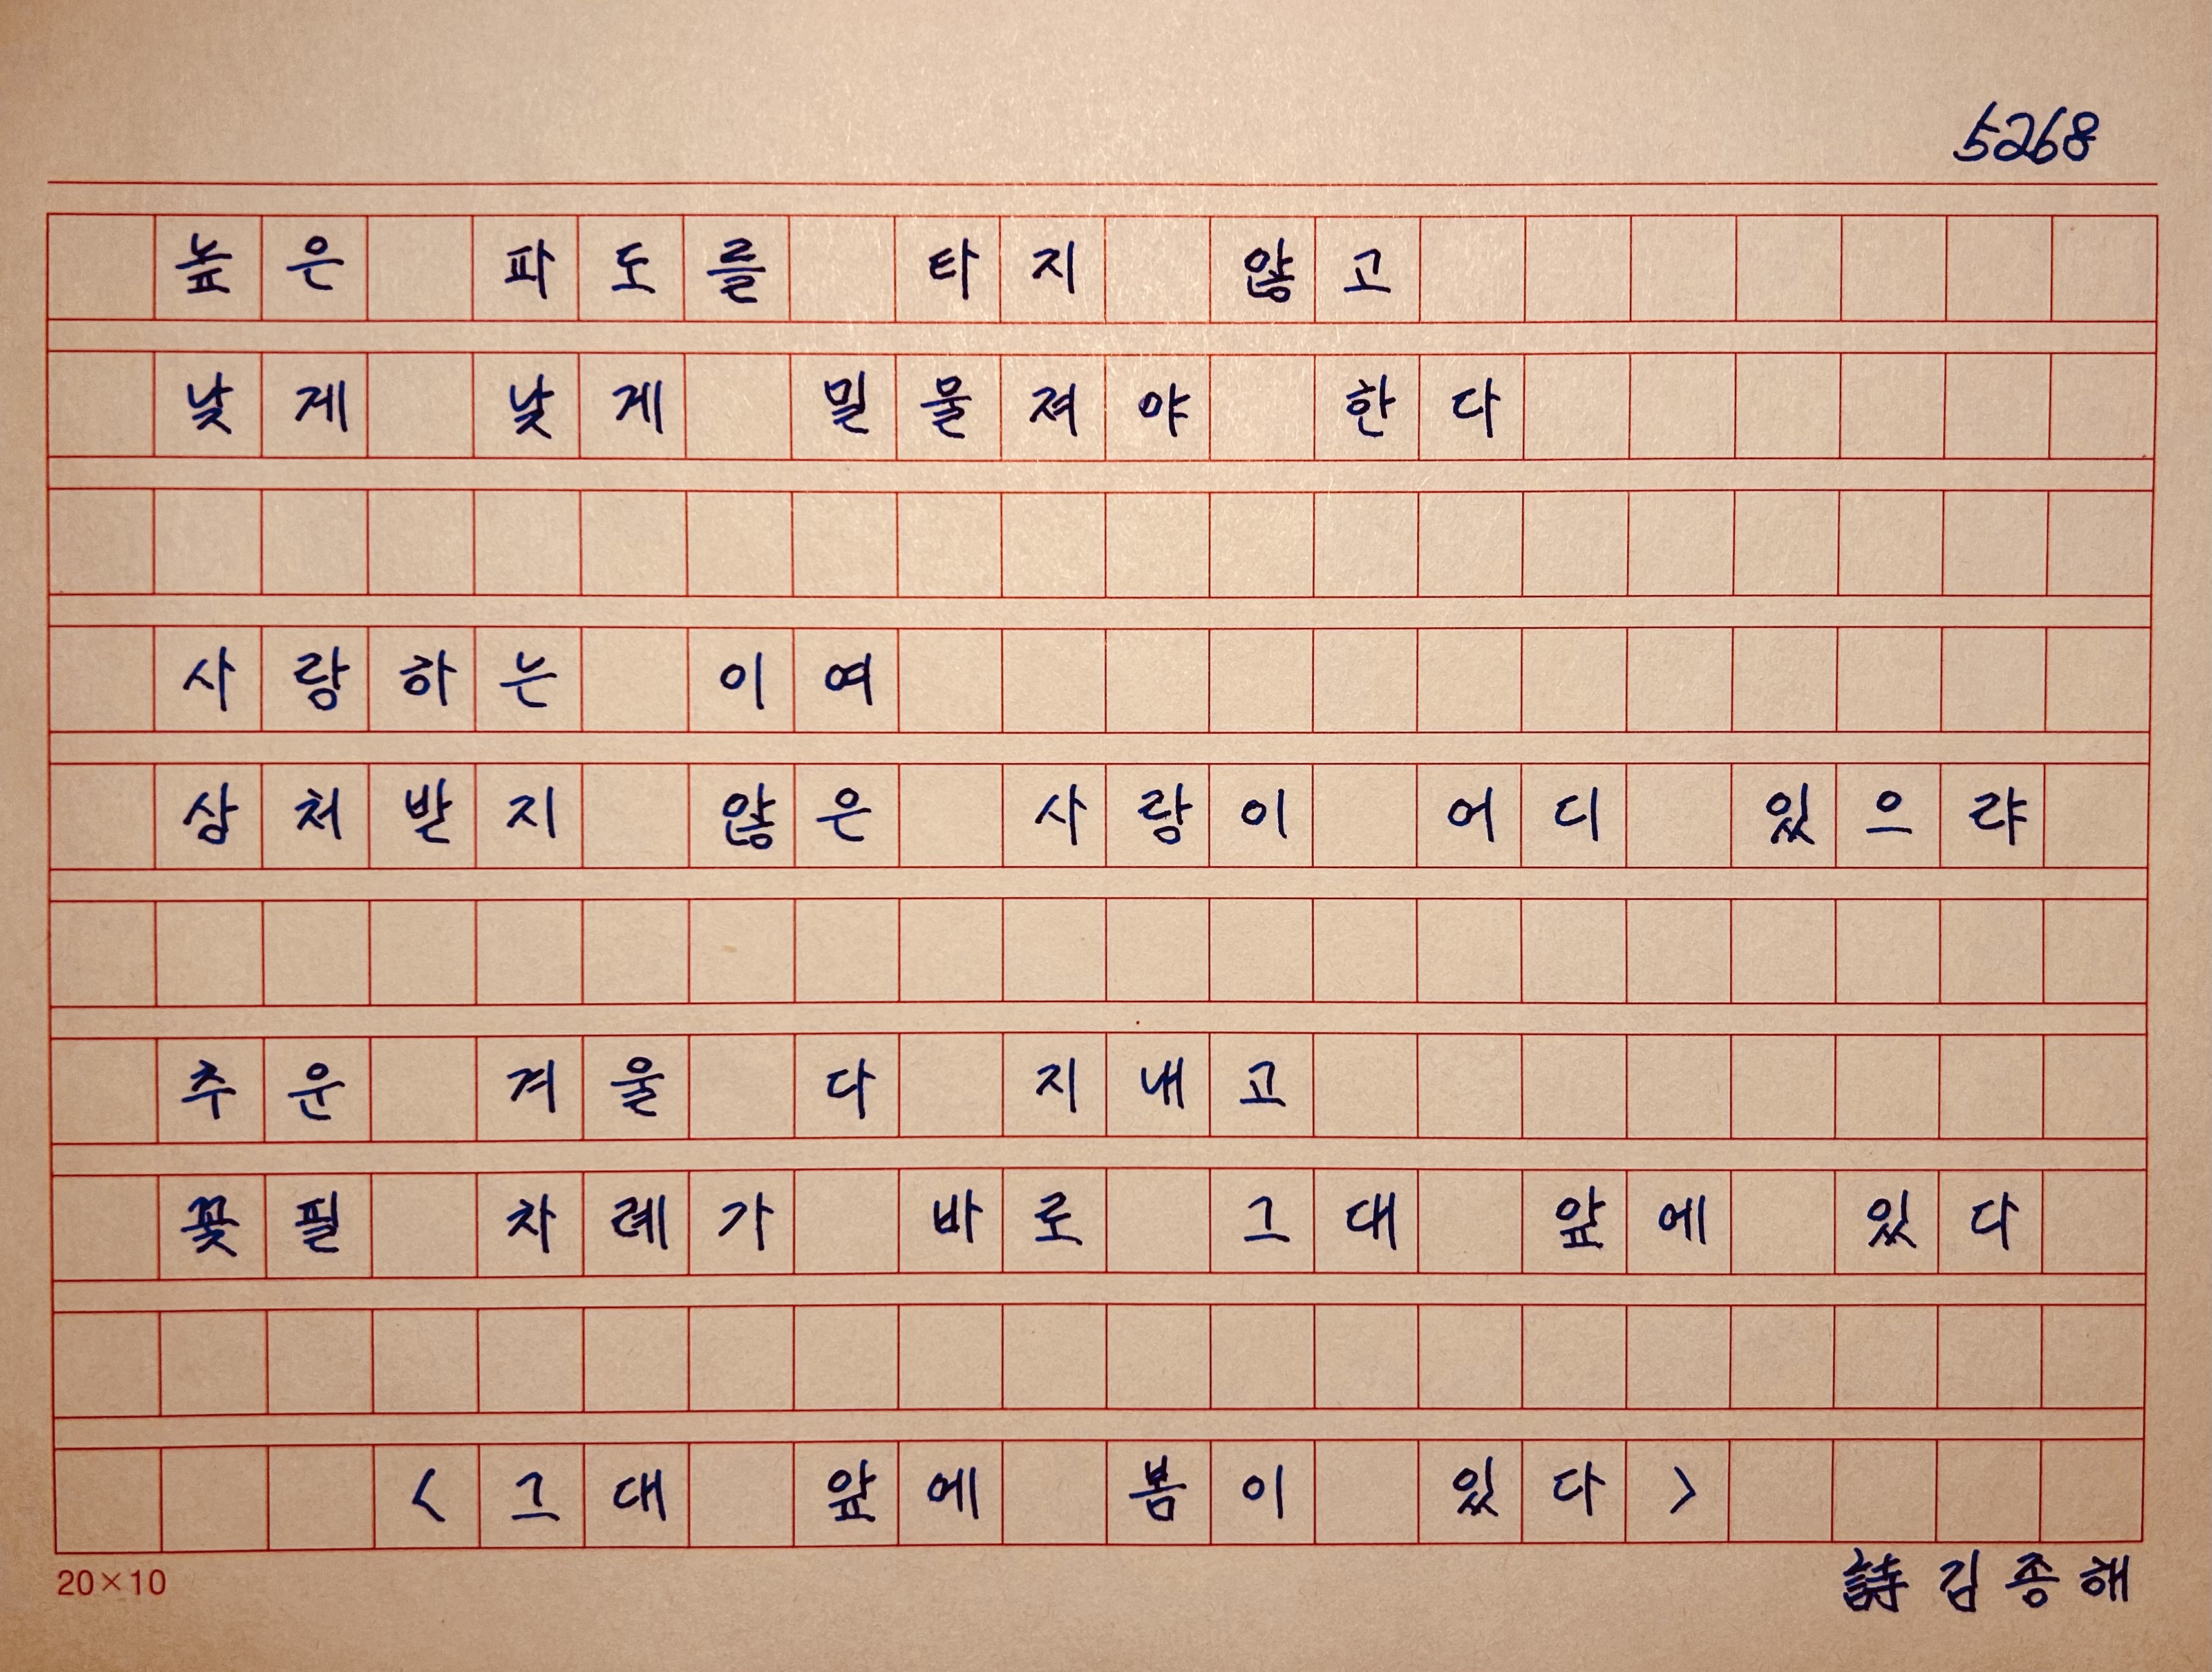 5268
높은 파도를 타지 않고
낮게 낮게 밀물져야 한다
사랑하는 이여
상처받지 않은 사랑이 어디 있으랴
추운 겨울 다 지내고
꽃필 차례가 바로 그대 앞에 있다
<그대 앞에 봄이 있다>
20×10
詩 김종해